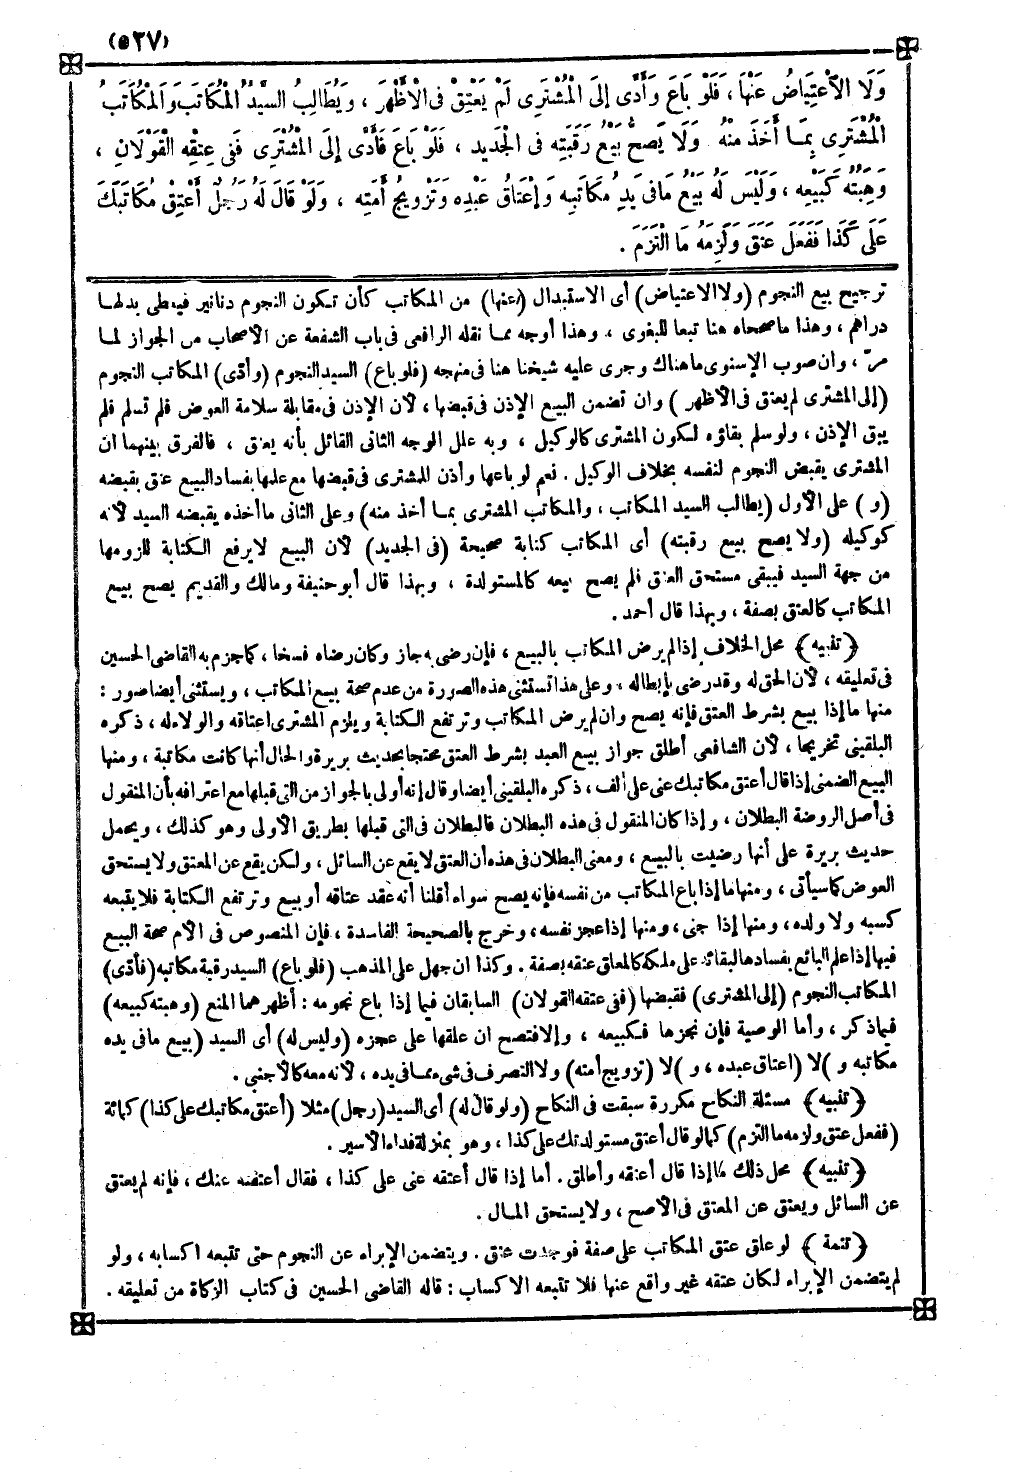 (٥٢٧)
وَلَا الْاَعْتِيَاضُ عَنْهَا ، فَلَوْ بَاعَ وَأَدَّى إِلَى الْمُشْتَرِى لَمْ يَعْتِقْ فِى الْأَظْهَرِ ، وَيُطَالِبُ السَّيِّدُ الْمُكَاتَبَ وَالْمُكَاتَبُ
الْمُشْتَرِىَ بِمَا أَخَذَ مِنْهُ وَلَا يَصِحُّ بَيْعُ رَقَبَتِهِ فِى الْجَدِيدِ ، فَلَوْ بَاعَ فَأَدَّى إِلَى الْمُشْتَرِى فَفِى عِتْقِهِ الْقَوْلَانِ ،
وَهِبَتُهُ كَبَيْعِهِ ، وَلَيْسَ لَهُ بَيْعُ مَا فِى يَدِ مُكَاتَبِهِ وَإِعْتَاقُ عَبْدِهِ وَتَزْوِيجُ أَمَتِهِ ، وَلَوْ قَالَ لَهُ رَجُلٌ أَعْتِقْ مُكَاتَبَكَ
عَلَى كَذَا فَفَعَلَ عَتَقَ وَلَزِمَهُ مَا الْتَزَمَ .
ترجيح بيع النجوم (ولا الاعتياض) أى الاستبدال (عنها) من المكاتب كأن تكون النجوم دنانير فيعطى بدلها
دراهم ، وهذا ما صححاه هنا تبعا للبغوى ، وهذا أوجه مما نقله الرافعى فى باب الشفعة عن الأصحاب من الجواز لما
مرّ ، وان صوب الإسنوى ما هناك وجرى عليه شيخنا هنا فى منهجه (فلو باع) السيد النجوم (وأدّى) المكاتب النجوم
(إلى المشترى لم يعتق فى الأظهر) وان تضمن البيع الإذن فى قبضها ، لأن الإذن فى مقابلة سلامة العوض فلم تسلم فلم
يبق الإذن ، ولو سلم بقاؤه لكون المشترى كالوكيل ، وبه علل الوجه الثانى القائل بأنه يعتق ، فالفرق بينهما ان
المشترى يقبض النجوم لنفسه بخلاف الوكيل . نعم لو باعها وأذن للمشترى فى قبضها مع علمها بفساد البيع عتق بقبضه
(و) على الأول (يطالب السيد المكاتب ، والمكاتب المشترى بما أخذ منه) وعلى الثانى ما أخذه يقبضه السيد لأنه
كوكيله (ولا يصح بيع رقبته) أى المكاتب كتابة صحيحة (فى الجديد) لأن البيع لا يرفع الكتابة للزومها
من جهة السيد فيبقى مستحق العتق فلم يصح بيعه كالمستولدة ، وبهذا قال أبو حنيفة ومالك والقديم يصح بيع
المكاتب كالعتق بصفة ، وبهذا قال أحمد .
﴿تنبيه﴾ محل الخلاف إذا لم يرض المكاتب بالبيع ، فإن رضى به جاز وكان رضاه فسخا ، كما جزم به القاضى الحسين
فى تعليقه ، لأن الحق له وقد رضى بإبطاله ، وعلى هذا تستثنى هذه الصورة من عدم صحة بيع المكاتب ، ويستثنى أيضا صور :
منها ما إذا بيع بشرط العتق فإنه يصح وان لم يرض المكاتب وترتفع الكتابة ويلزم المشترى اعتاقه والولاء له ، ذكره
البلقينى تخريجا ، لأن الشافعى أطلق جواز بيع العبد بشرط العتق محتجا بحديث بريرة والحال أنها كانت مكاتبة ، ومنها
البيع الضمنى إذا قال أعتق مكاتبك عنى على ألف ، ذكره البلقينى أيضا وقال إنه أولى بالجواز من التى قبلها مع اعترافه بأن المنقول
فى أصل الروضة البطلان ، وإذا كان المنقول فى هذه البطلان فالبطلان فى التى قبلها بطريق الأولى وهو كذلك ، ويحمل
حديث بريرة على أنها رضيت بالبيع ، ومعنى البطلان فى هذه أن العتق لا يقع عن السائل ، ولكن يقع عن المعتق ولا يستحق
العوض كما سيأتى ، ومنها ما إذا باع المكاتب من نفسه فإنه يصح سواء أقلنا أنه عقد عتاقه أو بيع وترتفع الكتابة فلا يتبعه
كسبه ولا ولده ، ومنها إذا جنى ، ومنها إذا عجز نفسه ، وخرج بالصحيحة الفاسدة ، فإن المنصوص فى الأم صحة البيع
فيها إذا علم البائع بفسادها لبقائه على ملكه كالمعلق عتقه بصفة . وكذا ان جهل على المذهب (فلو باع) السيد رقبة مكاتبه (فأدّى)
المكاتب النجوم (إلى المشترى) فقبضها (ففى عتقه القولان) السابقان فيما إذا باع نجومه : أظهرهما المنع (وهبته كبيعه)
فيما ذكر ، وأما الوصية فإن نجزها فكبيعه ، وإلا فتصح ان علقها على عجزه (وليس له) أى السيد (بيع ما فى يده
مكاتبه و) لا (اعتاق عبده ، و) لا (تزويج أمته) ولا التصرف فى شىء مما فى يده ، لأنه معه كالأجنبى .
﴿تنبيه﴾ مسئلة النكاح مكررة سبقت فى النكاح (ولو قال له) أى السيد (رجل) مثلا (أعتق مكاتبك على كذا) كمائة
(ففعل عتق ولزمه ما التزم) كما لو قال أعتق مستولدتك على كذا ، وهو بمنزلة فداء الأسير .
﴿تنبيه﴾ محل ذلك ما إذا قال أعتقه وأطلق . أما إذا قال أعتقه عنى على كذا ، فقال أعتقته عنك ، فإنه لم يعتق
عن السائل ويعتق عن المعتق فى الأصح ، ولا يستحق المال .
﴿تتمة﴾ لو علق عتق المكاتب على صفة فوجدت عتق . ويتضمن الإبراء عن النجوم حتى تتبعه اكسابه ، ولو
لم يتضمن الإبراء لكان عتقه غير واقع عنها فلا تتبعه الاكساب : قاله القاضى الحسين فى كتاب الزكاة من تعليقه .